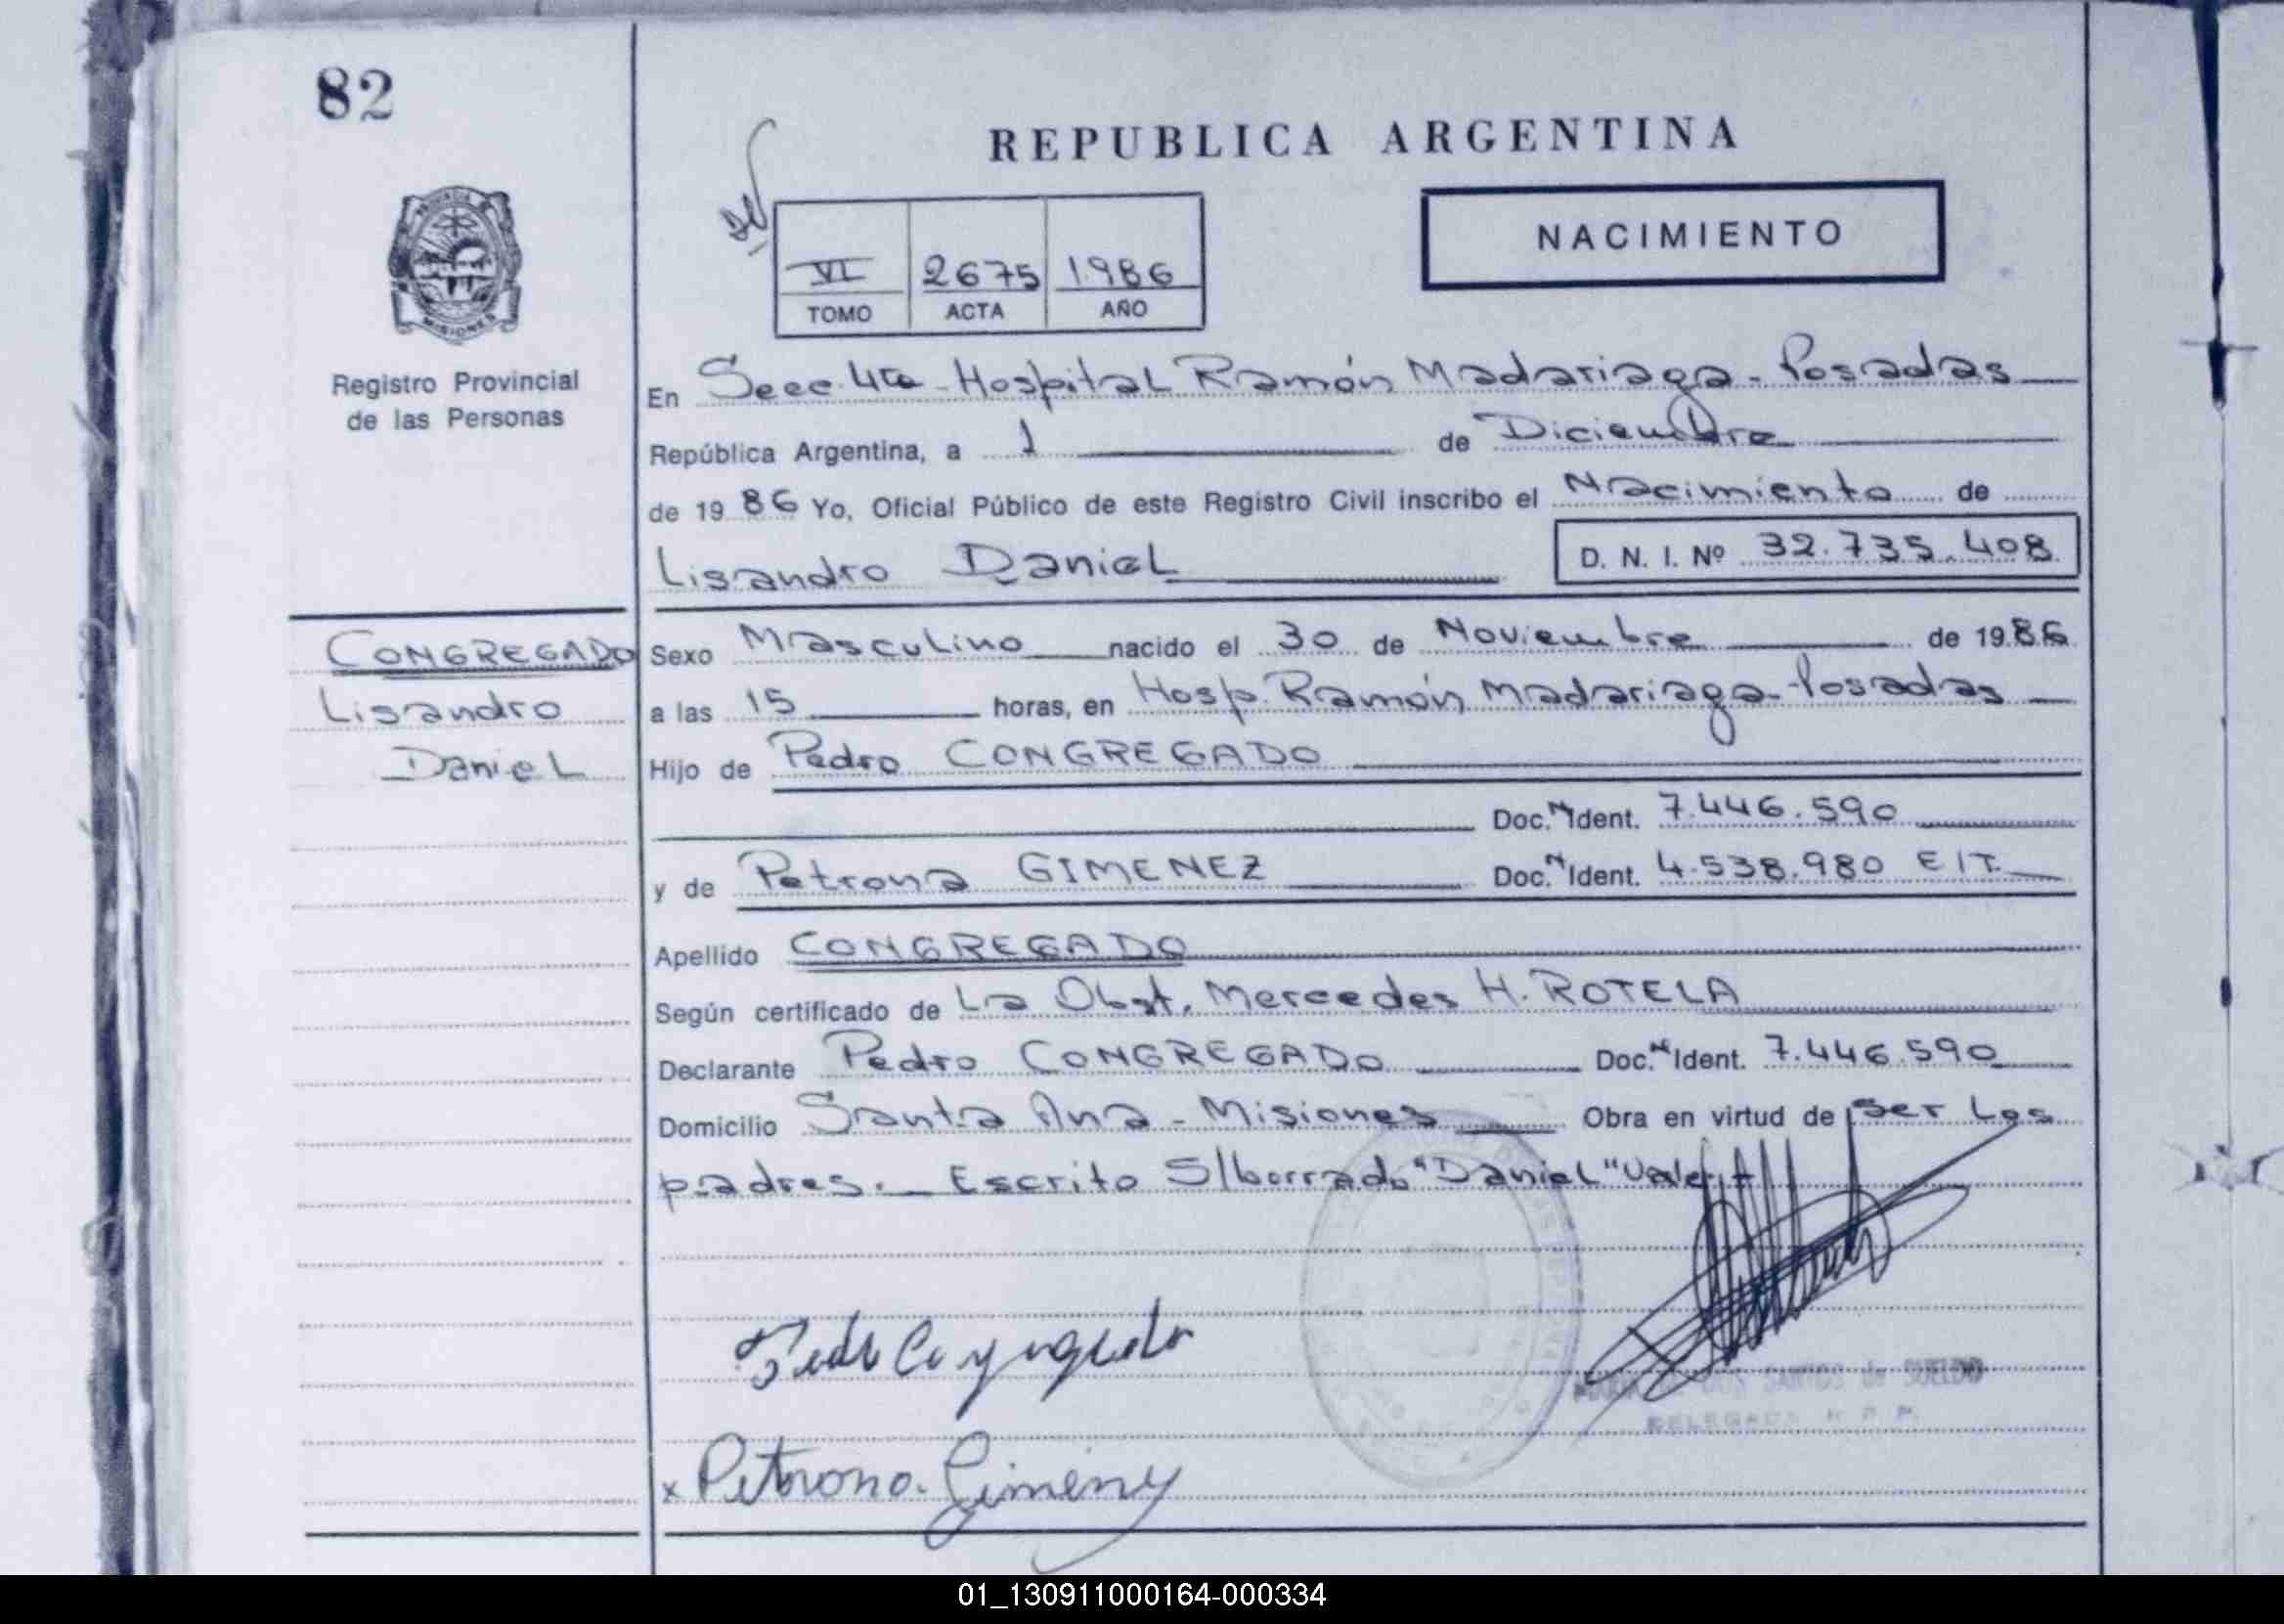 82
REPUBLICA ARGENTINA
NACIMIENTO
VI 2675 1986
TOMO ACTA AÑO
MISIONES
Registro Provincial
de las Personas
En Secc. 4ta - Hospital Ramón Madariaga - Posadas
República Argentina, a 1 de Diciembre
de 19 86 Yo, Oficial Público de este Registro Civil inscribo el Nacimiento de
Lisandro Daniel D. N. I. Nº 32.735.408
CONGREGADO
Lisandro
Daniel
Sexo Masculino nacido el 30 de Noviembre de 1986
a las 15 horas, en Hosp. Ramón Madariaga - Posadas
Hijo de Pedro CONGREGADO
Doc. N Ident. 7.446.590
y de Petrona GIMENEZ Doc. N Ident. 4.538.980 E/T.
Apellido CONGREGADO
Según certificado de La Obst. Mercedes H. ROTELA
Declarante Pedro CONGREGADO Doc. Ident. 7.446.590
Domicilio Santa Ana - Misiones Obra en virtud de ser los
padres. Escrito S/borrado "Daniel" Vale
DOS SANTOS de SUELDO
DELEGADA R. P. P.
x Petrona Gimenez
01_130911000164-000334